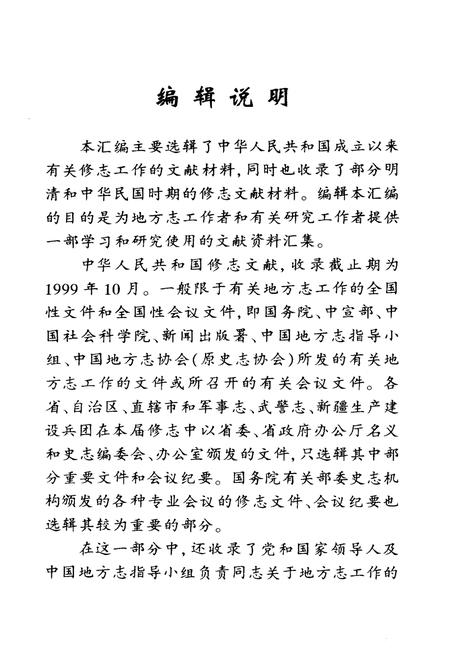 编辑说明
本汇编主要选辑了中华人民共和国成立以来
有关修志工作的文献材料，同时也收录了部分明
清和中华民国时期的修志文献材料。编辑本汇编
的目的是为地方志工作者和有关研究工作者提供
一部学习和研究使用的文献资料汇集。
中华人民共和国修志文献，收录截止期为
1999年10月。一般限于有关地方志工作的全国
性文件和全国性会议文件，即国务院、中宣部、中
国社会科学院、新闻出版署、中国地方志指导小
组、中国地方志协会（原史志协会）所发的有关地
方志工作的文件或所召开的有关会议文件。各
省、自治区、直辖市和军事志、武警志、新疆生产建
设兵团在本届修志中以省委、省政府办公厅名义
和史志编委会、办公室颁发的文件，只选辑其中部
分重要文件和会议纪要。国务院有关部委史志机
构颁发的各种专业会议的修志文件、会议纪要也
选辑其较为重要的部分。
在这一部分中，还收录了党和国家领导人及
中国地方志指导小组负责同志关于地方志工作的